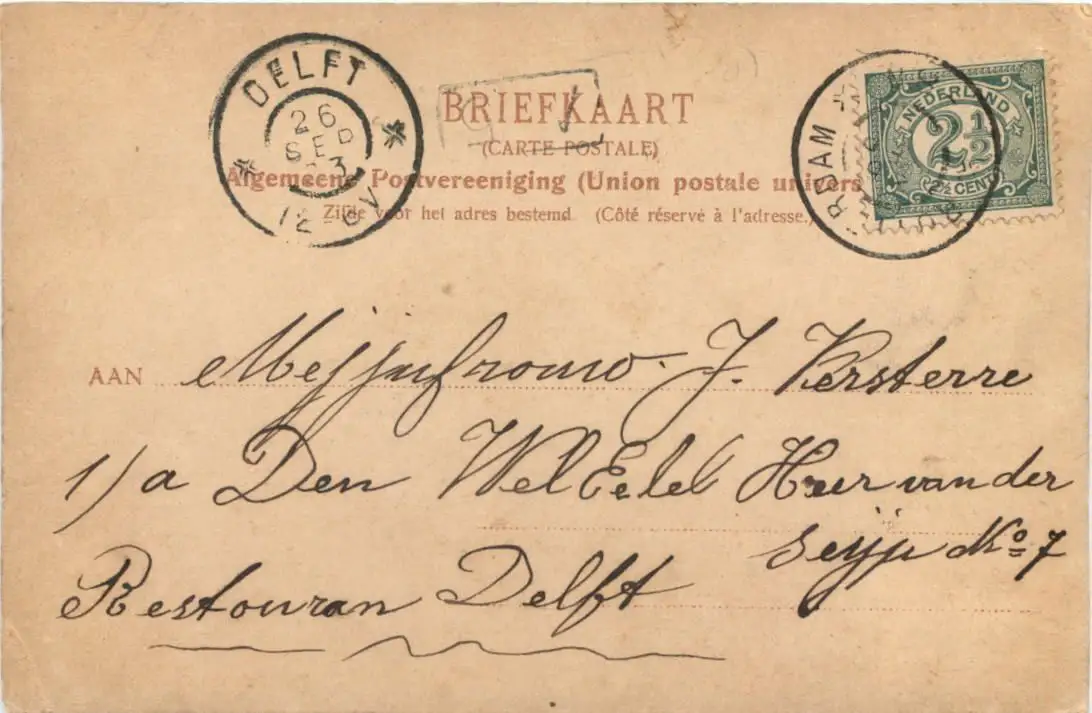 DELFT
26
SEP
12-6V
BRIEFKAART
(CARTE POSTALE)
Algemeene Postvereeniging (Union postale univers
Zijde voor het adres bestemd (Côté réservé à l'adresse.)
NEDERLAND
2½
(2½ CENT)
RDAM
AAN Mejjufrouw. J. Kersterre
1/a Den WelEdel Heer van der
Seyp No 7
Restouran Delft